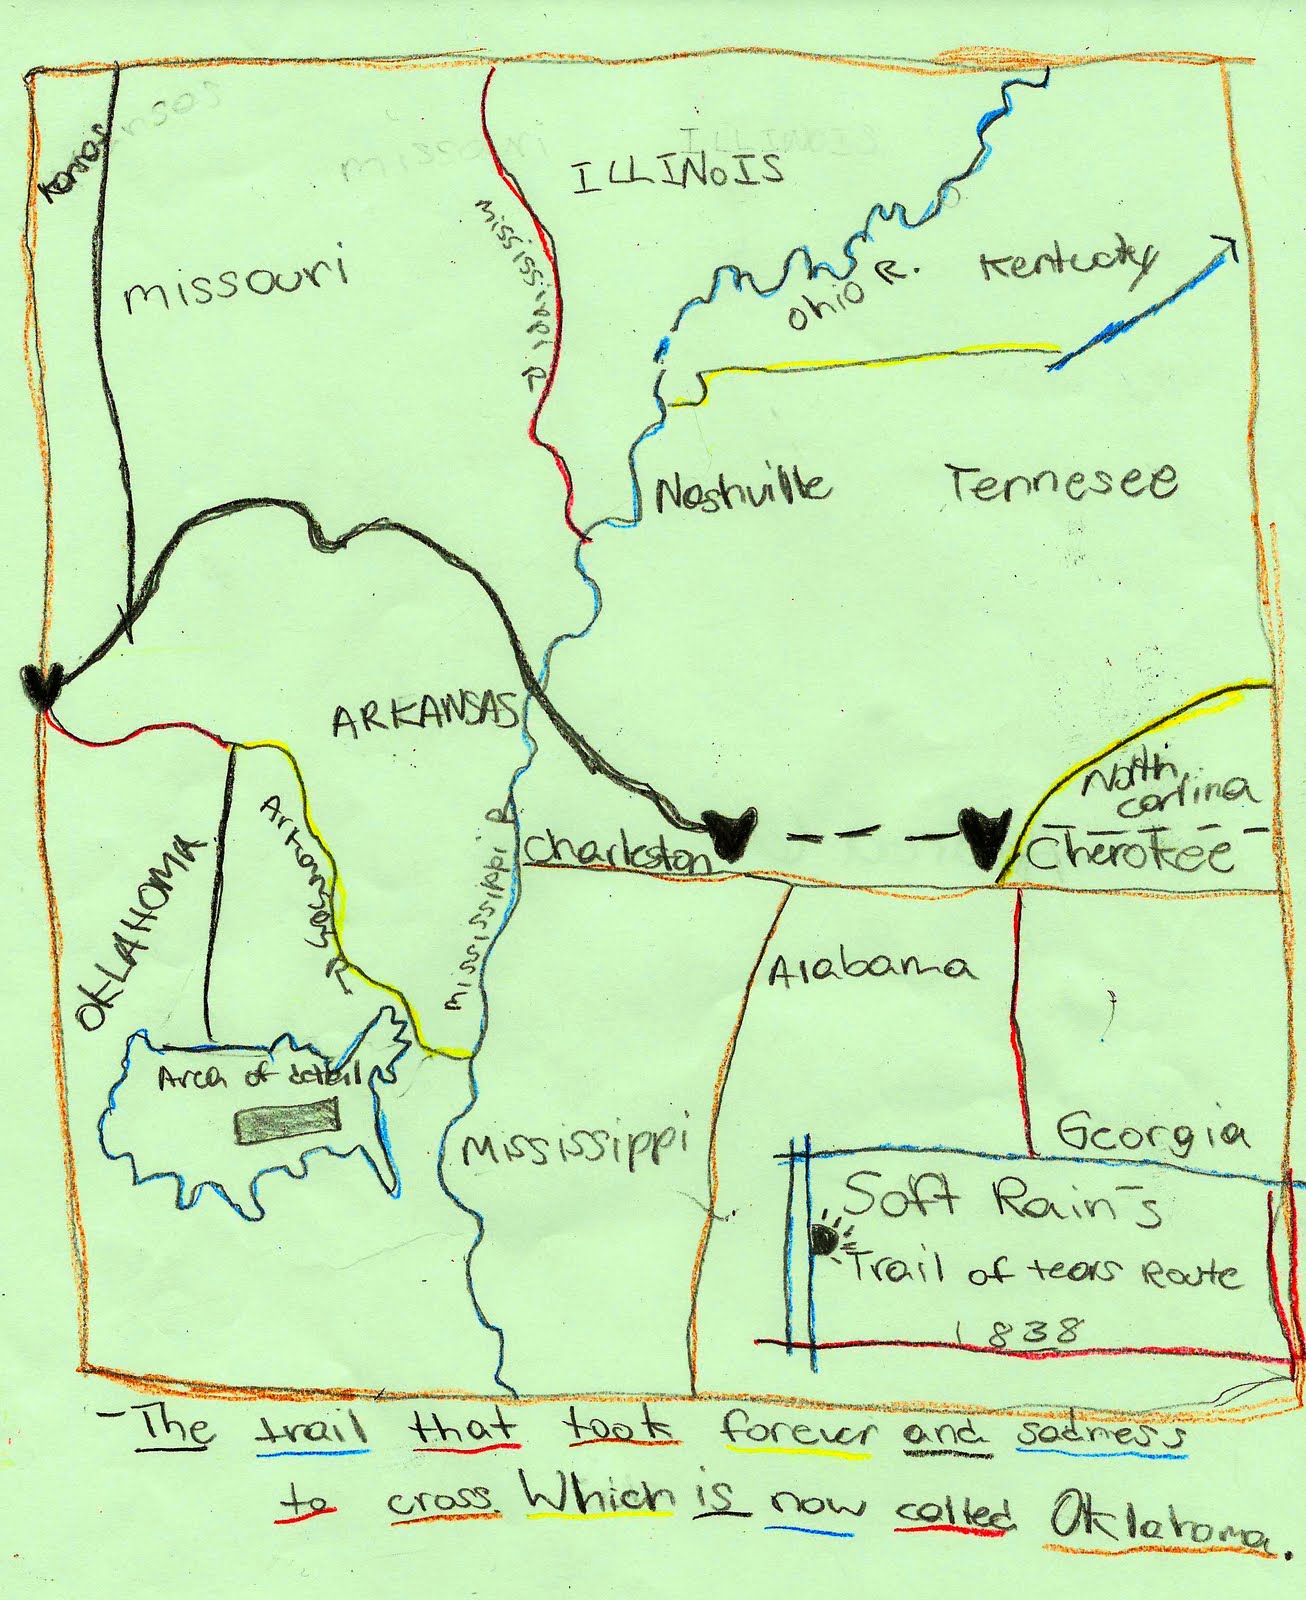 Kansas
ILLINOIS
Missouri
Mississippi R
Ohio R.
Kentucky
Nashville
Tennesee
ARKANSAS
North
carlina
Cherokee
Charleston
OKLAHOMA
Arkansas R
Mississippi R
Alabama
Area of detail
Mississippi
Georgia
Soft Rain's
Trail of tears Route
1838
-The trail that took forever and sadness
to cross. Which is now called Oklahoma.